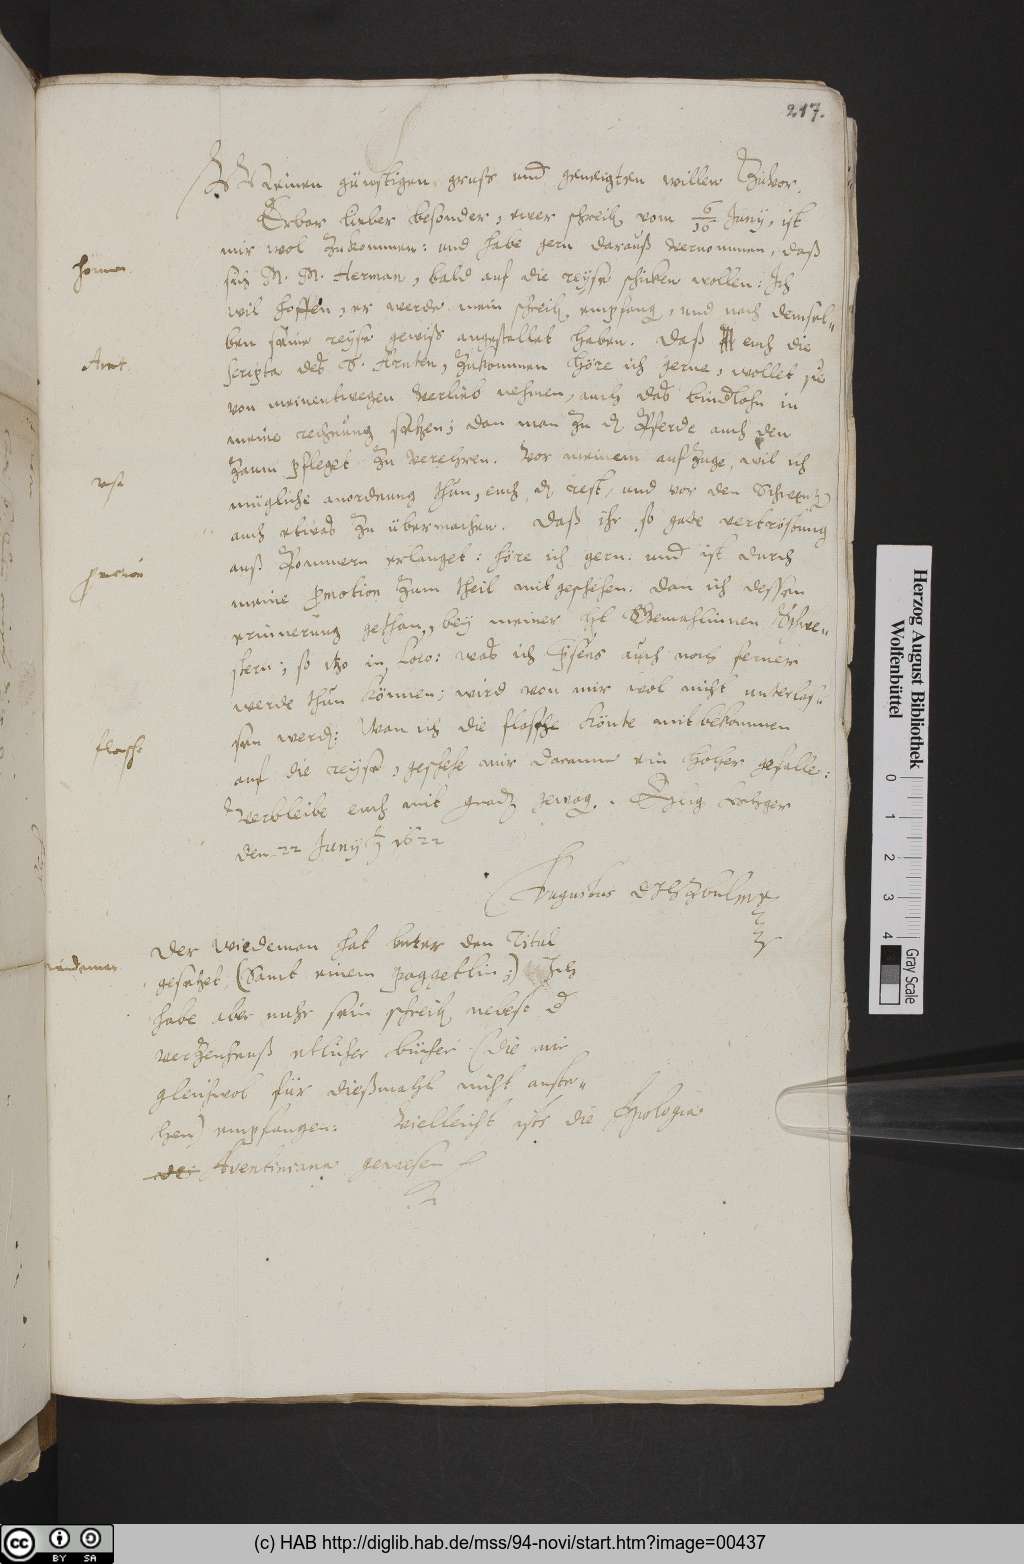 217.
Meinen günstigen grus und geneigten willen Zuvor.
Erbar lieber besonder, ewer schreib vom 6/16 Junij, ist
mir wol Zukommen: und habe gern darauß vernommen, daß
sich M. M. Herman, bald auf die reyse schicken wollen: Ich
wil hoffen, er werde mein schreib empfang, und nach demsel-
ben seine reyse gewiß angestellet haben. Daß euch die
scripta des S. Arnten, Zukommen höre ich gerne, wollet sie
von meinentwegen verlieb nehmen, auch das bindlohn in
meine rechnung setzen; dan man Zu d Pferde auch den
Zaum pfleget Zu verehren. Vor meinem aufZuge, wil ich
mügliche anordnung thun, euch d rest, und vor den
auch etwas Zu übermachen. Daß ihr so gute vertröstung
auß Pommern erlanget: höre ich gern: und ist durch
meine promotion Zum theil mit geschehen: dan ich dessen
erinnerung gethan, bey meiner Gemahlinnen Schwe-
stern; so itzo in loco: was ich auch noch ferner
werde thun können; wird von mir wol nicht unterlas-
sen werd: Wan ich die flasche könte mit bekommen
auf die reyse, geschehe mir daranne ein hoher gefalle:
Verbleibe euch mit gnad gewog. Eylig
den 22 Junij 1622
Augustus
Der Wiedeman hat unter den Titul
gesetzet, (Samt einem paggetlin;) Ich
habe aber nuhr sein schreib nebest d
verZeichnuß etlicher bücher (die mir
gleichwol für dießmahls nicht anste-
hen) empfangen: Vielleicht ists die Apologia
des Aventiniana gewesen
herman
Arnt
promotion
flasche
wiedeman
Herzog August Bibliothek
Wolfenbüttel
0 1 2 3 4
Gray Scale
cc BY SA
(c) HAB http://diglib.hab.de/mss/94-novi/start.htm?image=00437